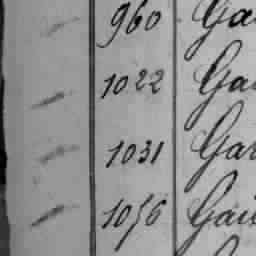 960 Ga
1022 Ga
1031 Gar
1056 Gai